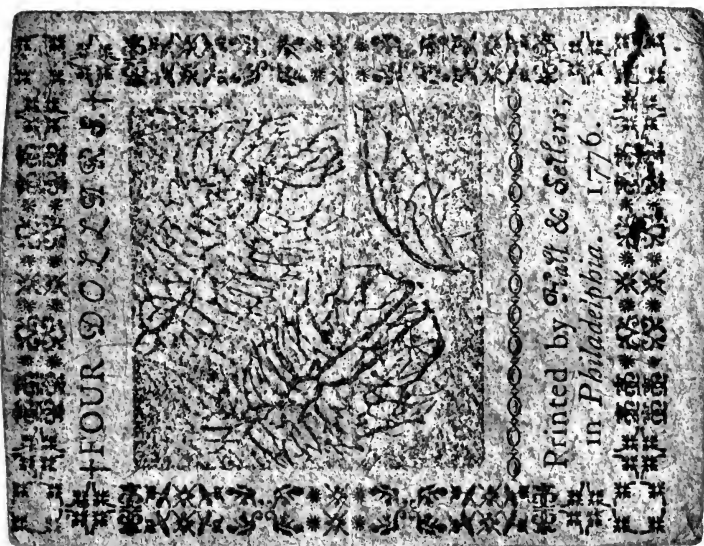 FOUR DOLLARS.
Printed by Hall & Sellers,
in Philadelphia. 1776.